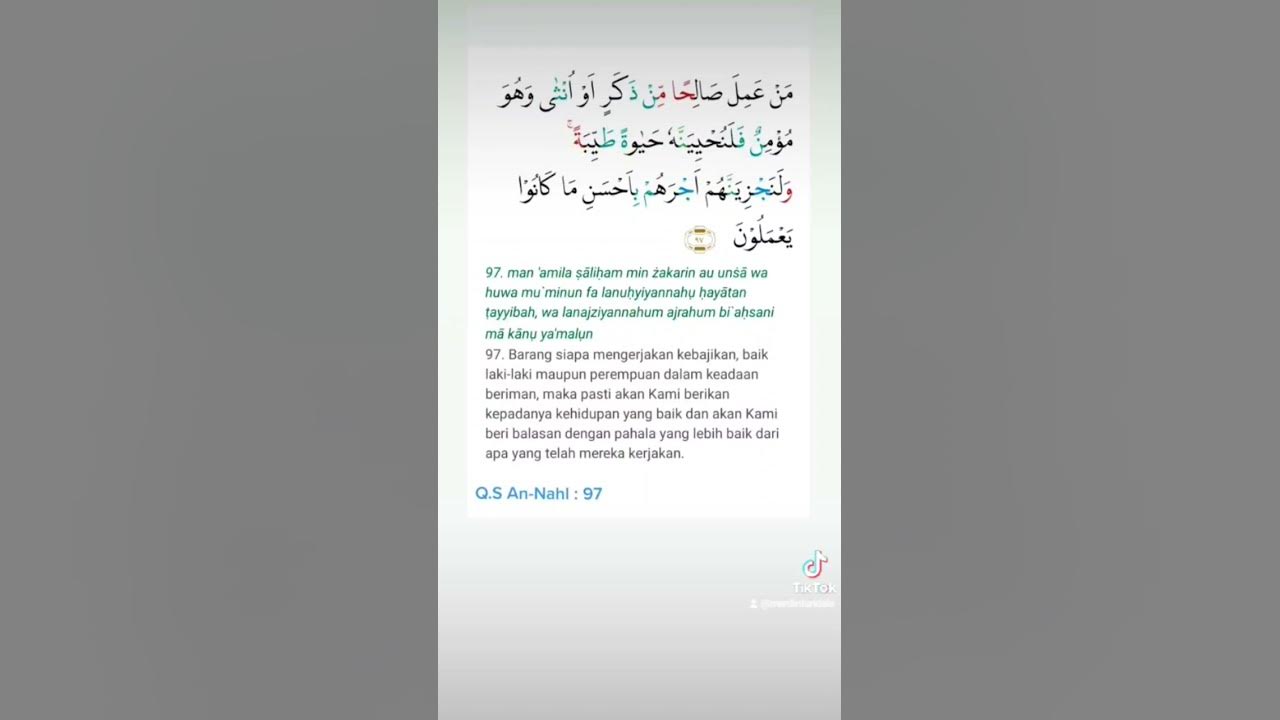 مَنْ عَمِلَ صَالِحًا مِّنْ ذَكَرٍ اَوْ اُنْثٰى وَهُوَ
مُؤْمِنٌ فَلَنُحْيِيَنَّهٗ حَيٰوةً طَيِّبَةًۚ
وَلَنَجْزِيَنَّهُمْ اَجْرَهُمْ بِاَحْسَنِ مَا كَانُوْا
يَعْمَلُوْنَ ٩٧
97. man 'amila ṣāliḥam min żakarin au unṡā wa
huwa mu`minun fa lanuḥyiyannahụ ḥayātan
ṭayyibah, wa lanajziyannahum ajrahum bi`aḥsani
mā kānụ ya'malụn
97. Barang siapa mengerjakan kebajikan, baik
laki-laki maupun perempuan dalam keadaan
beriman, maka pasti akan Kami berikan
kepadanya kehidupan yang baik dan akan Kami
beri balasan dengan pahala yang lebih baik dari
apa yang telah mereka kerjakan.
Q.S An-Nahl : 97
TikTok